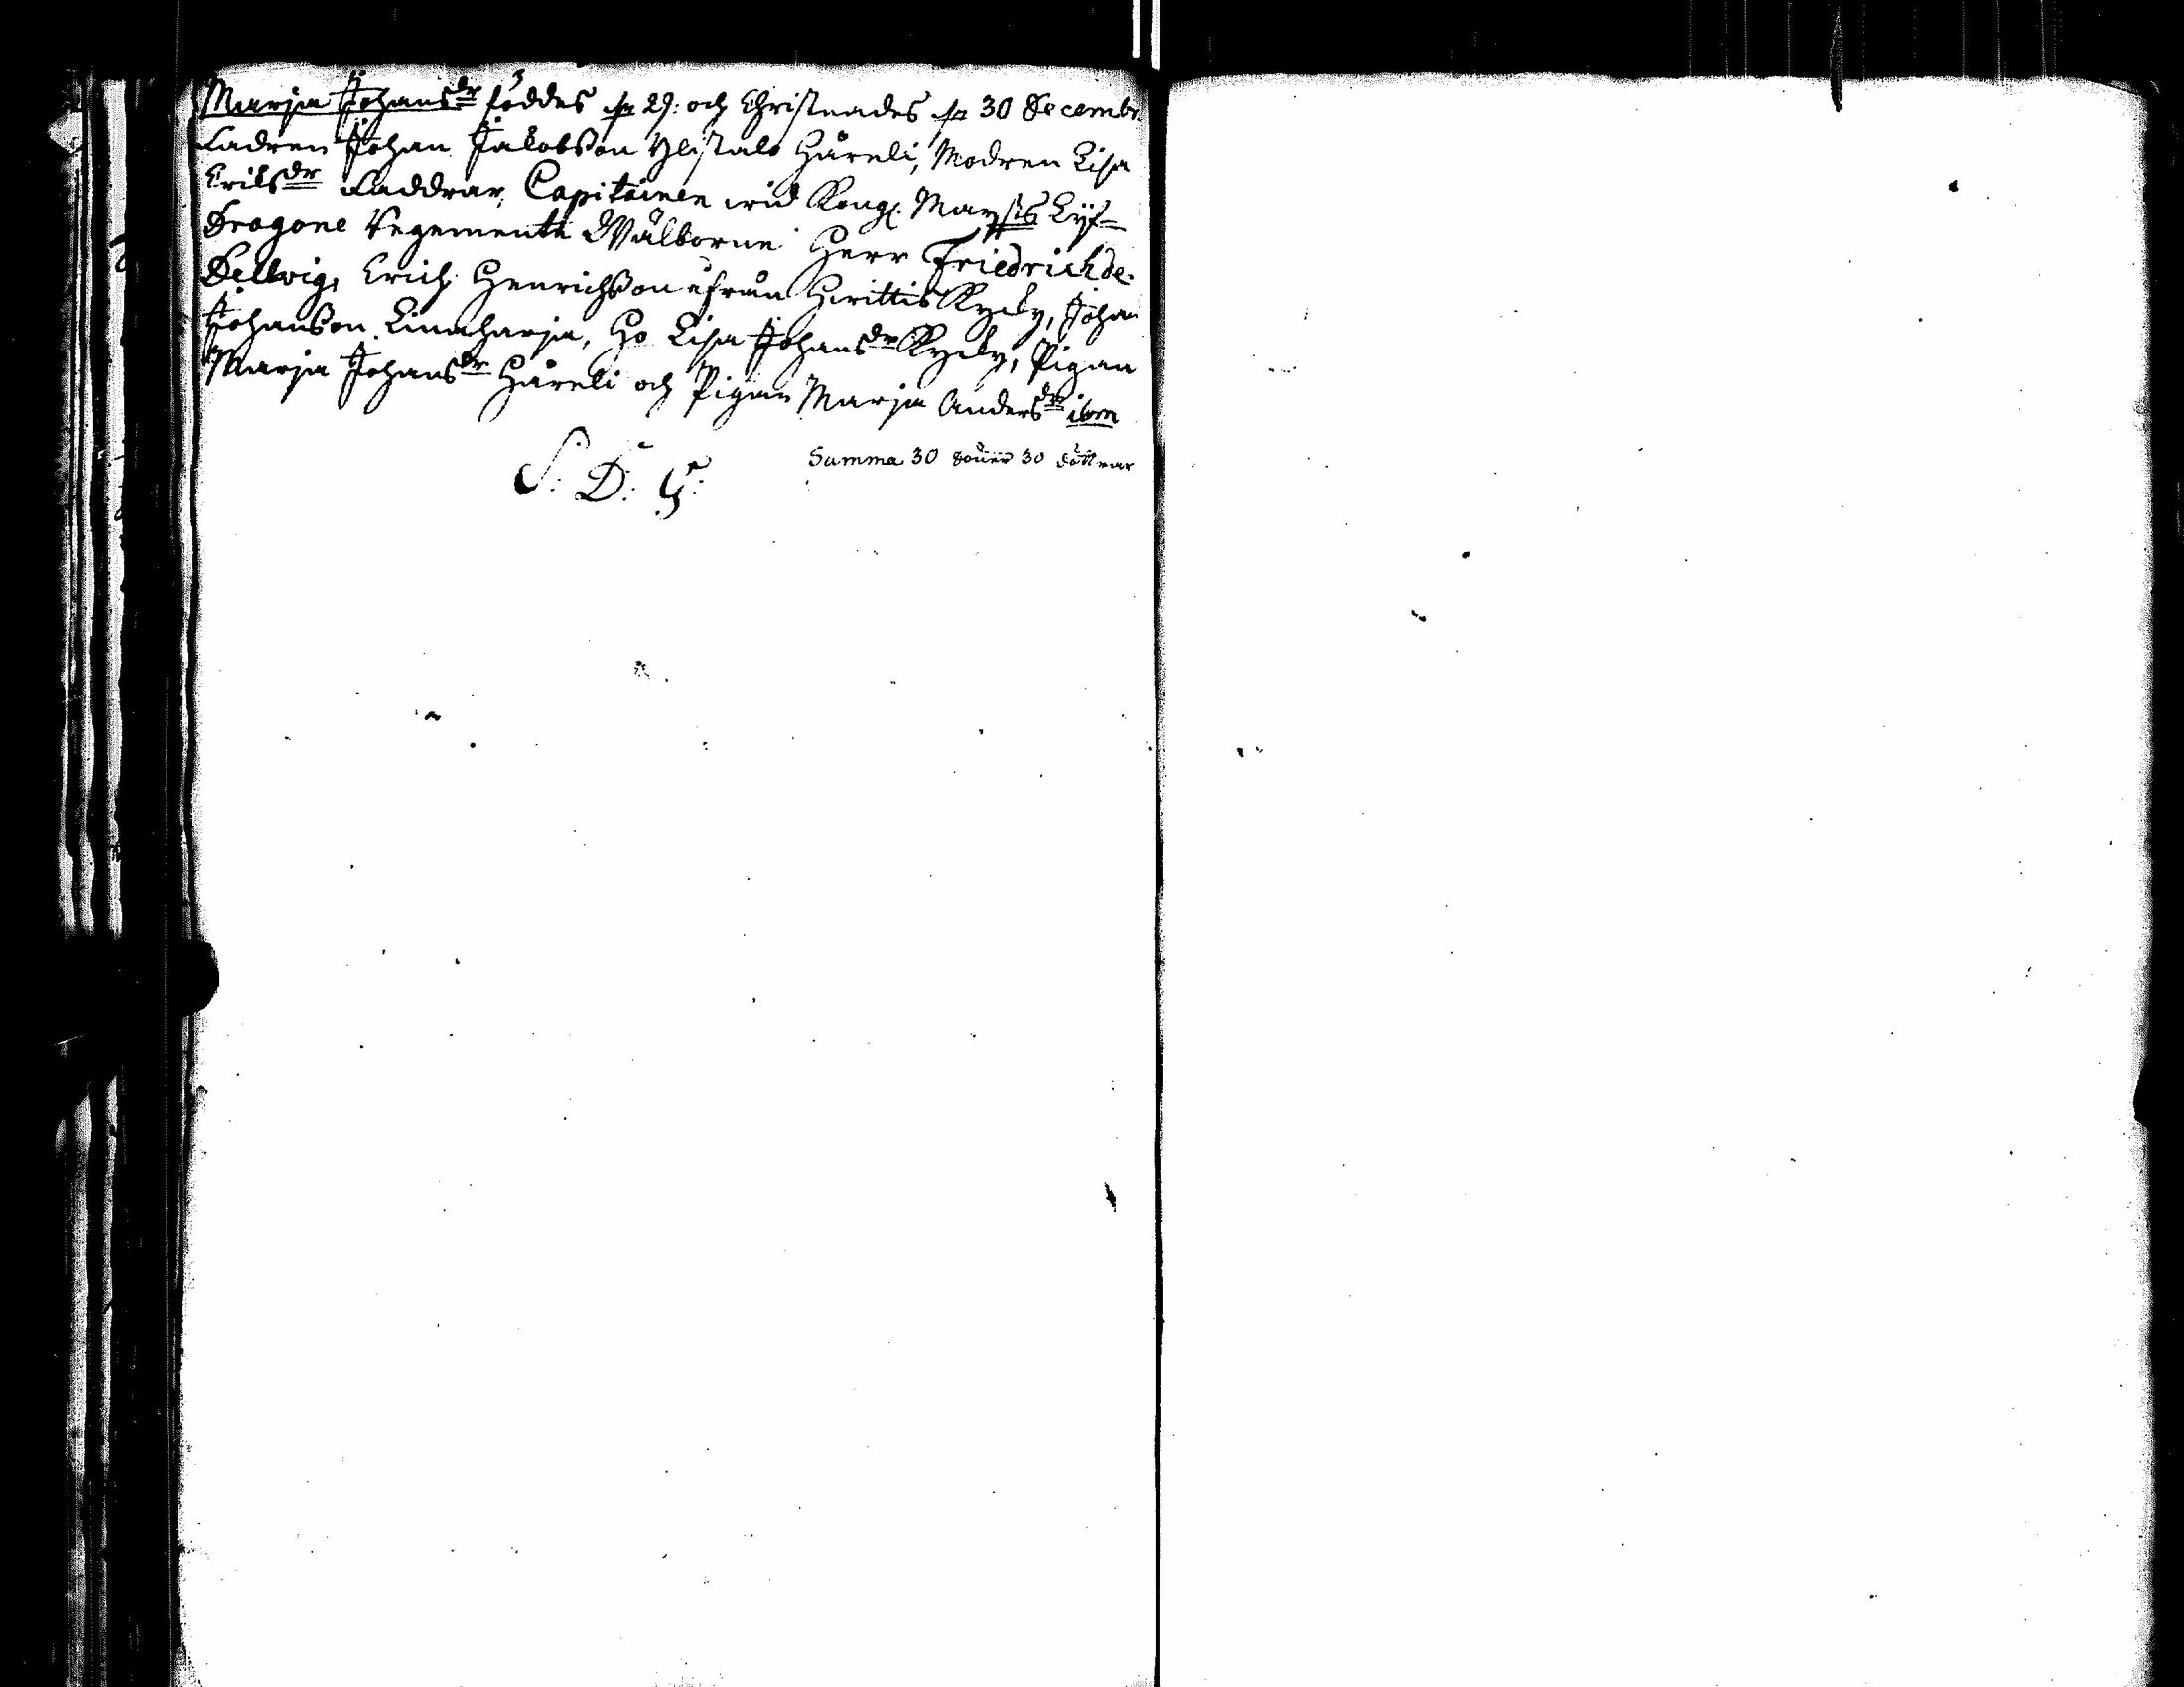 Marja Johansdr föddes d 29: och Christnades d 30 Decembr.
Fadren Johan Jakobsson Ylistalo Håreli, Modren Lisa
Eriksdr Faddrar, Capitainen wid Kongl. Mayts Lijf-
Dragone Regemente Wälborne Herr Friedrich de-
Dellwig, Erich Henrichsson ifrån Hirittis Kyrby, Johan
Johansson Linnharja, Ho Lisa Johansdr Kyrby, Pigan
Marja Johansdr Håreli och Pigan Marja Andersdr ibm
Summa 30 söner 30 döttrar
S: D: G: